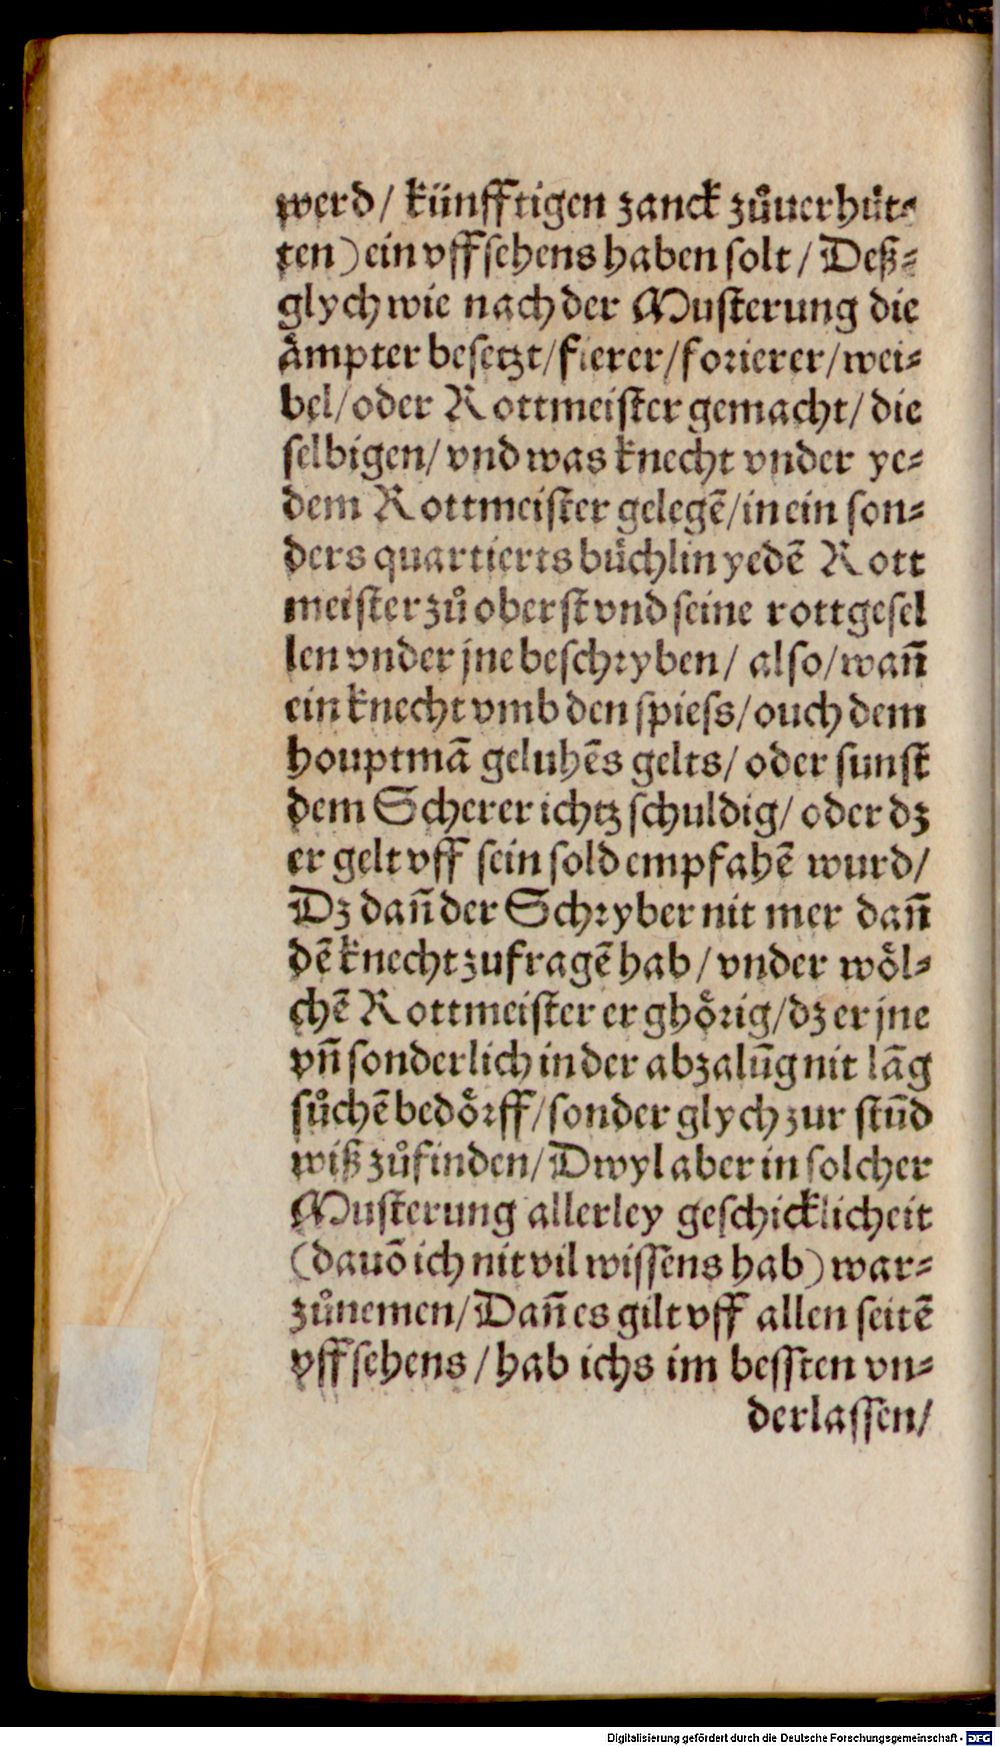 werd/ künfftigen zanck zůuerhüt⸗
ten) ein vffsehens haben solt/ Deß⸗
glych wie nach der Musterung die
åmpter besetzt/fierer/forierer/wei⸗
bel/oder Rottmeister gemacht/ die
selbigen/ vnd was knecht vnder ye⸗
dem Rottmeister gelegē/in ein son⸗
ders quartierts büchlin yedē Rott
meister zů oberst vnd seine rottgesel
len vnder jne beschryben/ also/wañ
ein knecht vmb den spiess/ouch dem
houptmā geluhēs gelts/ oder sunst
dem Scherer ichtz schuldig/ oder dz
er gelt vff sein sold empfahē wurd/
Dz dañ der Schryber nit mer dañ
dē knecht zufragē hab/vnder wöl⸗
chē Rottmeister er ghörig/dz er jne
vñ sonderlich in der abzalūg nit lāg
sůchē bedörff/sonder glych zur stūd
wiß zůfinden/Dwyl aber in solcher
Musterung allerley geschicklicheit
(dauō ich nit vil wissens hab) war⸗
zůnemen/Dañ es gilt vff allen seitē
vffsehens/hab ichs im bessten vn⸗
derlassen/
Digitalisierung gefördert durch die Deutsche Forschungsgemeinschaft - DFG